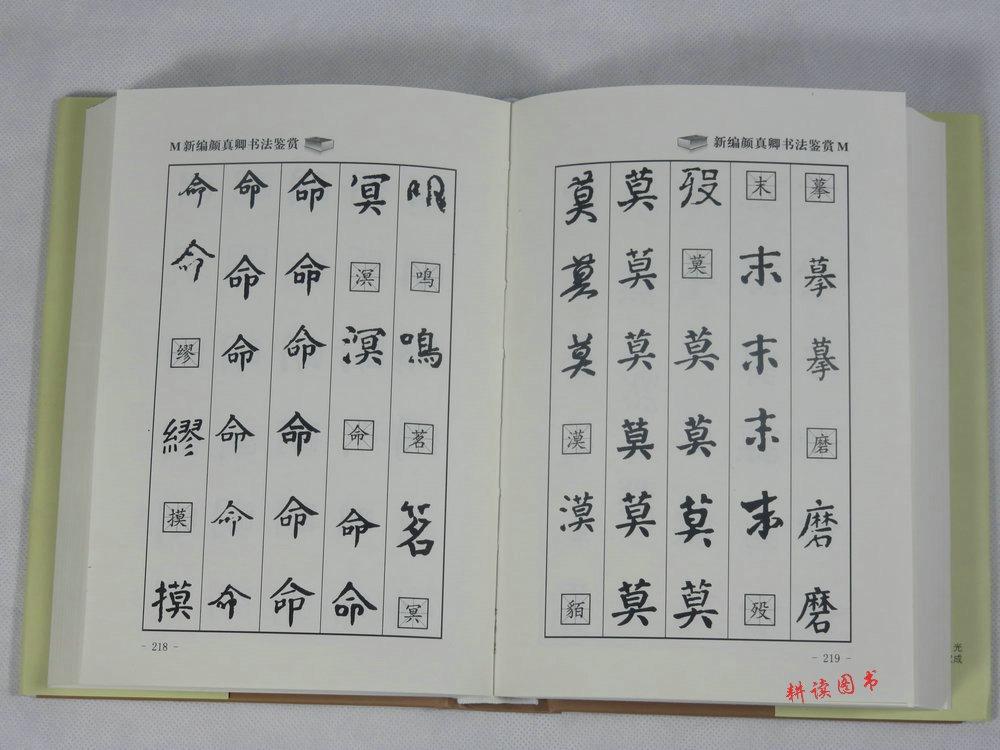 M新编颜真卿书法鉴赏
明鸣鳴茗茗冥
冥溟溟命命命
命命命命命命
命命命命命命
命命缪繆摸摸
- 218 -
新编颜真卿书法鉴赏M
摹摹摹磨磨磨
末末末末末殁
歿莫莫莫莫莫
莫莫莫莫莫莫
莫莫莫漠漠貊
- 219 -
光
成
耕读图书